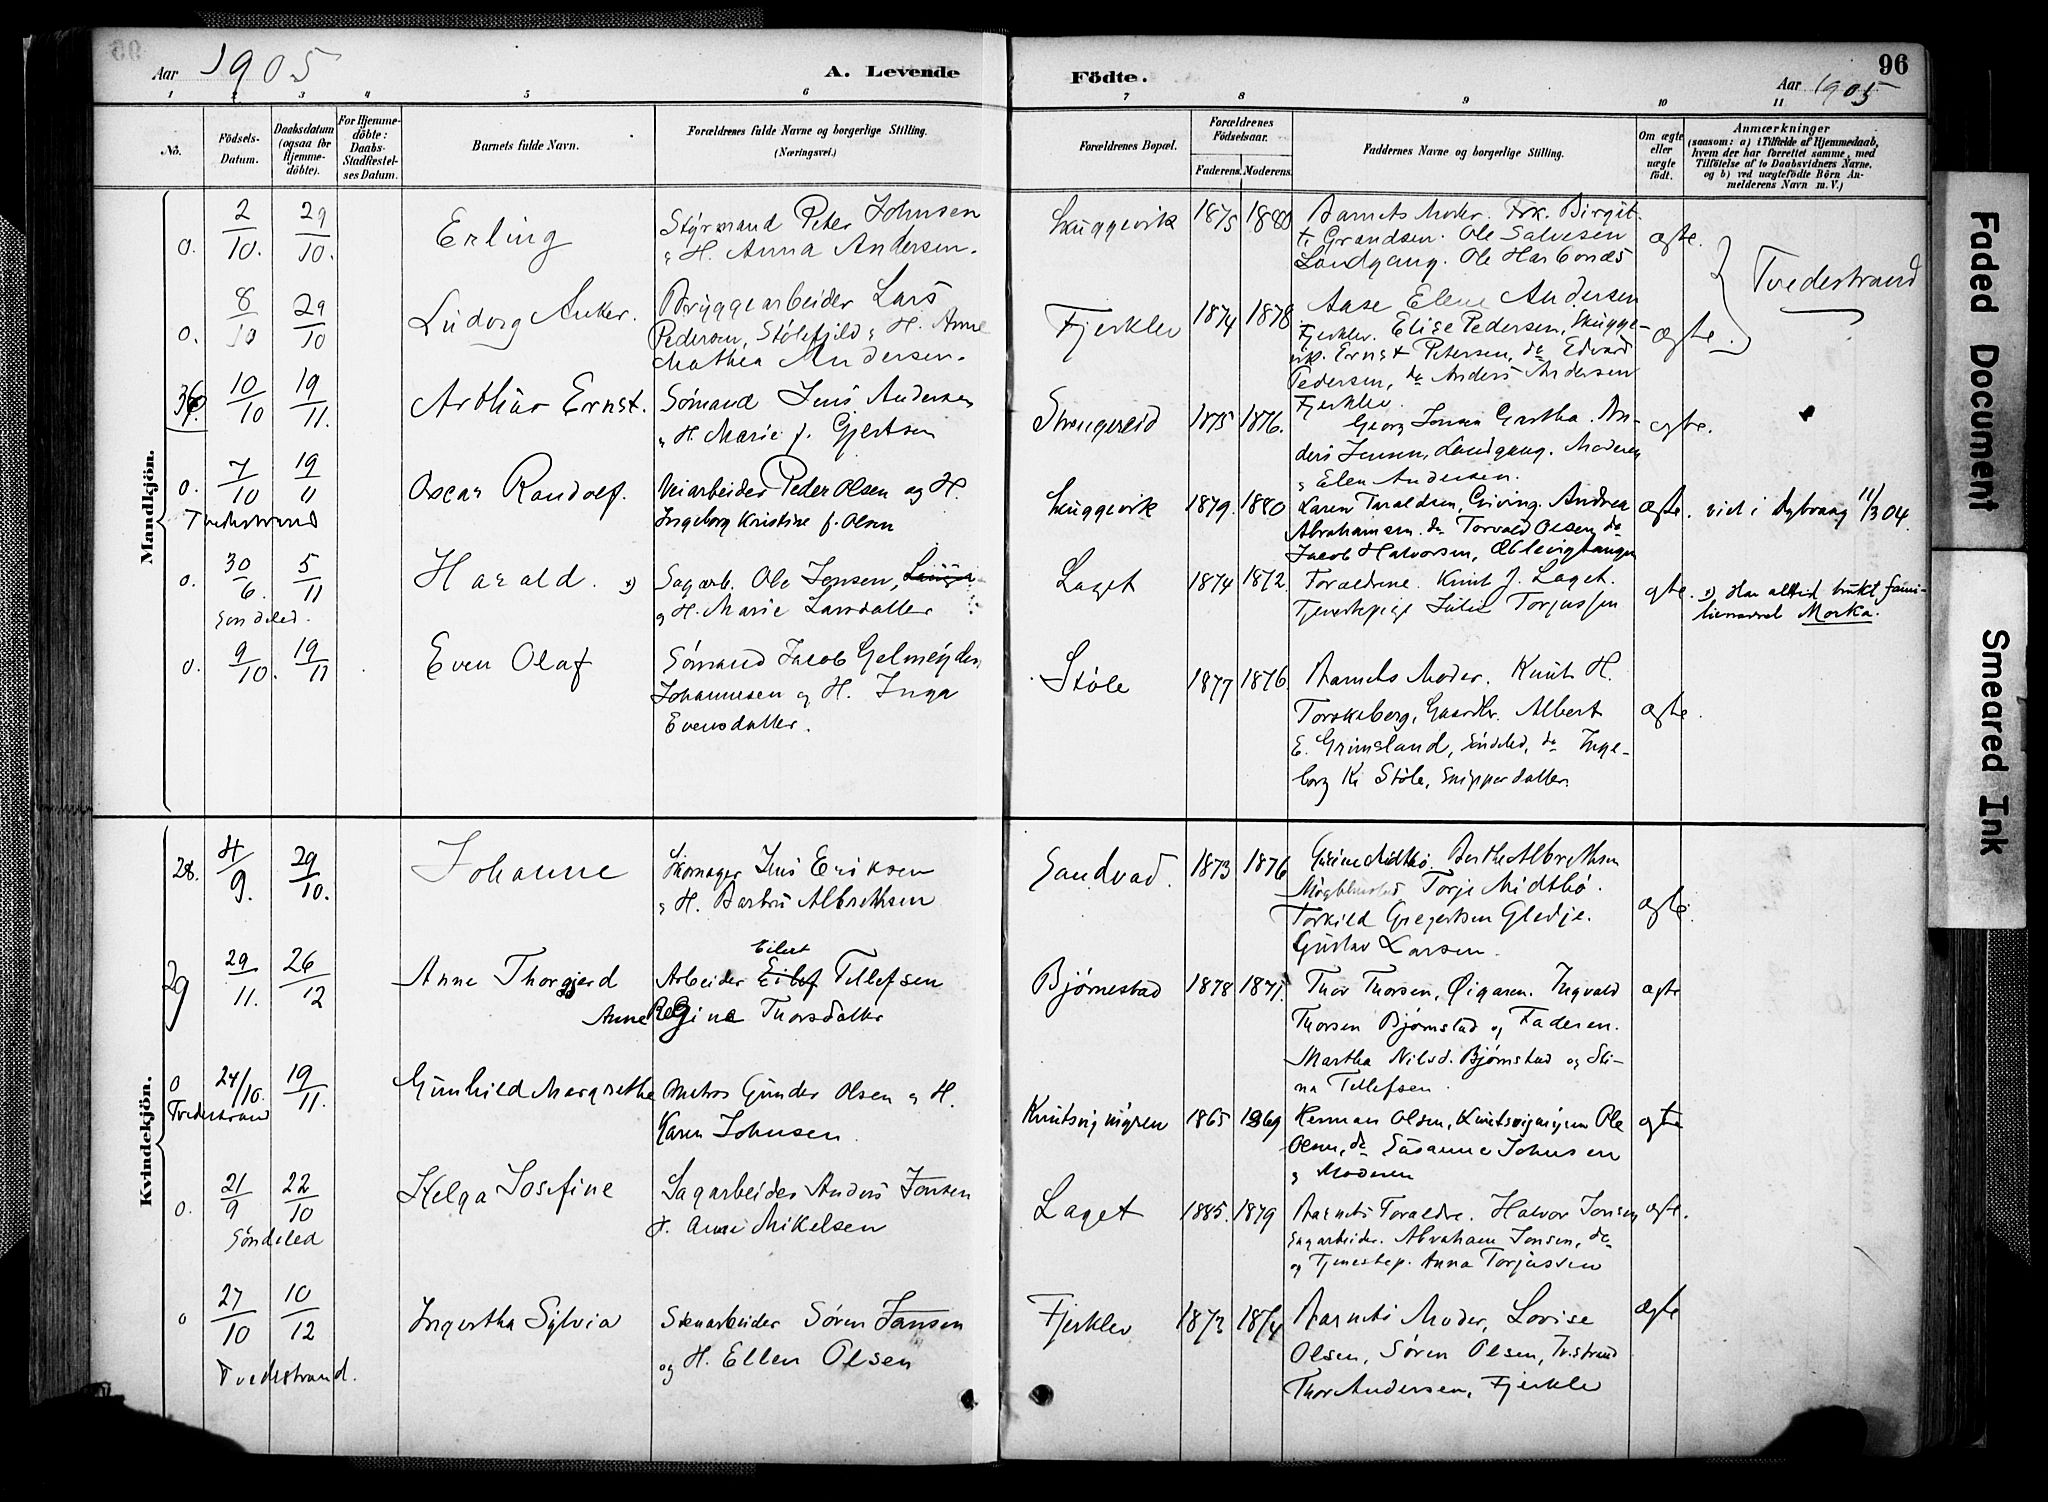 Aar 1905
A. Levende
Födte.
96
Aar 1905
1 2 3 4 5 6 7 8 9 10 11
No.
Födsels-
Datum.
Daabsdatum
(ogsaa for
Hjemme-
döbte).
For Hjemme-
döbte:
Daabs-
Stadfæstel-
ses Datum.
Barnets fulde Navn.
Forældrenes fulde Navne og borgerlige Stilling.
(Næringsvei.)
Forældrenes Bopæl.
Forældrenes
Födselsaar.
Faderens. Moderens.
Faddernes Navne og borgerlige Stilling.
Om ægte
eller
uægte
födt.
Anmærkninger
(saasom: a) i Tilfælde af Hjemmedaab,
hvem der har forrettet samme, med
Tilföielse af to Daabsvidners Navne,
og b) ved uægtefödte Börn An-
melderens Navn m. V.)
Mandkjön.
0. 2/10. 29/10. Erling
Styrmand Peter Johnsen
H. Anna Andersen.
Skuggevik 1875 1880
Barnets Moder. Frk. Birgit-
te Grandsen. Ole Salvesen
Landgang. Ole Harbonæs
ægte.
Tvedestrand
0. 8/10 29/10 Ludvig Anker.
Bryggearbeider Lars
Pedersen, Stölefjeld H. Anne
Mathea Andersen.
Fjerklev 1874 1878
Aase Elene Andersen
Fjerklev. Elise Pedersen, Skugge-
vik. Ernst Petersen, do Edvard
Pedersen, do Anders Andersen
Fjerklev.
ægte.
10/10 19/11. Arthur Ernst.
Sømand Jens Andersen
H. Marie f. Gjertsen
Strengereid 1875 1876.
Georg Jonsen Gartha. An-
ders Jensen, Landgang. Moderen
Elen Andersen.
ægte.
0. 7/10 19/11 Oscar Randolf.
Tvedestrand
Veiarbeider Peder Olsen og H.
Ingeborg Kristine f. Olsen
Skuggevik 1879. 1880
Karen Taraldsen, Giving. Andrea
Abrahamsen. do Torvald Olsen do
Jacob Halvorsen, Æblevigtangen
ægte. viet i Dybvaag 11/3 04.
0. 30/6. 5/11 Harald.
Søndeled.
Sagarb. Ole Jensen,
og H. Marie Larsdatter
Laget 1874 1872.
Foraldrene. Knut J. Laget.
Tjenestepige Julie Torjussen
ægte. Har altid brukt fami-
lienavnet Morka.
0. 9/10. 19/11 Even Olaf
Sømand Jacob Gelmeyden
Johannesen og H. Inga
Evensdatter.
Støle 1877 1876
Barnets Moder. Knut H.
Torskeberg, Gaardbr. Albert
E. Grimsland, Søndeled, do Inge-
borg K. Støle, Skipperdatter.
ægte.
Kvindekjön.
28. 4/9. 29/10. Johanne
Skomager Jens Eriksen
H. Barbro Albrethsen
Sandvad. 1873 1876
Gurine Midtbö. Berthe Albrethsen
Torje Midtbö.
Torkild Gregertsen Gledje.
Gustav Larsen.
ægte.
29 29/11. 26/12 Anne Thorgjerd
Eilert
Arbeider Eilef Tellefsen
Anne Regine Thorsdatter
Bjørnestad 1878 1871.
Thor Thorsen, Øigaren. Ingvald
Thorsen Bjørnstad og Faderen.
Martha Nilsd. Bjørnstad og Sti-
na Tellefsen.
ægte
0 24/10. 19/11. Gunhild Margrethe
Tvedestrand
Matros Gunder Olsen H.
Karen Johnsen.
Knutsvigmyren 1865 1869
Herman Olsen, Knutsvigmyren Ole
Olsen, do Susanne Johnsen
Moderen
ægte
0. 21/9 22/10 Helga Josefine
Søndeled
Sagarbeider Anders Jonsen
H. Anne Mikelsen
Laget 1885. 1879
Barnets Foraldre. Halvor Jonsen
Sagarbeider. Abraham Jonsen, do
og Tjenestep. Anna Torjussen
ægte.
0 27/10 10/12 Ingertha Sylvia
Tvedestrand.
Stenarbeider Søren Jansen
og H. Ellen Olsen
Fjerklev 1873 1874
Barnets Moder, Lovise
Olsen, Søren Olsen, Tvstrand
Thor Andersen, Fjerklev
ægte
Faded Document
Smeared Ink